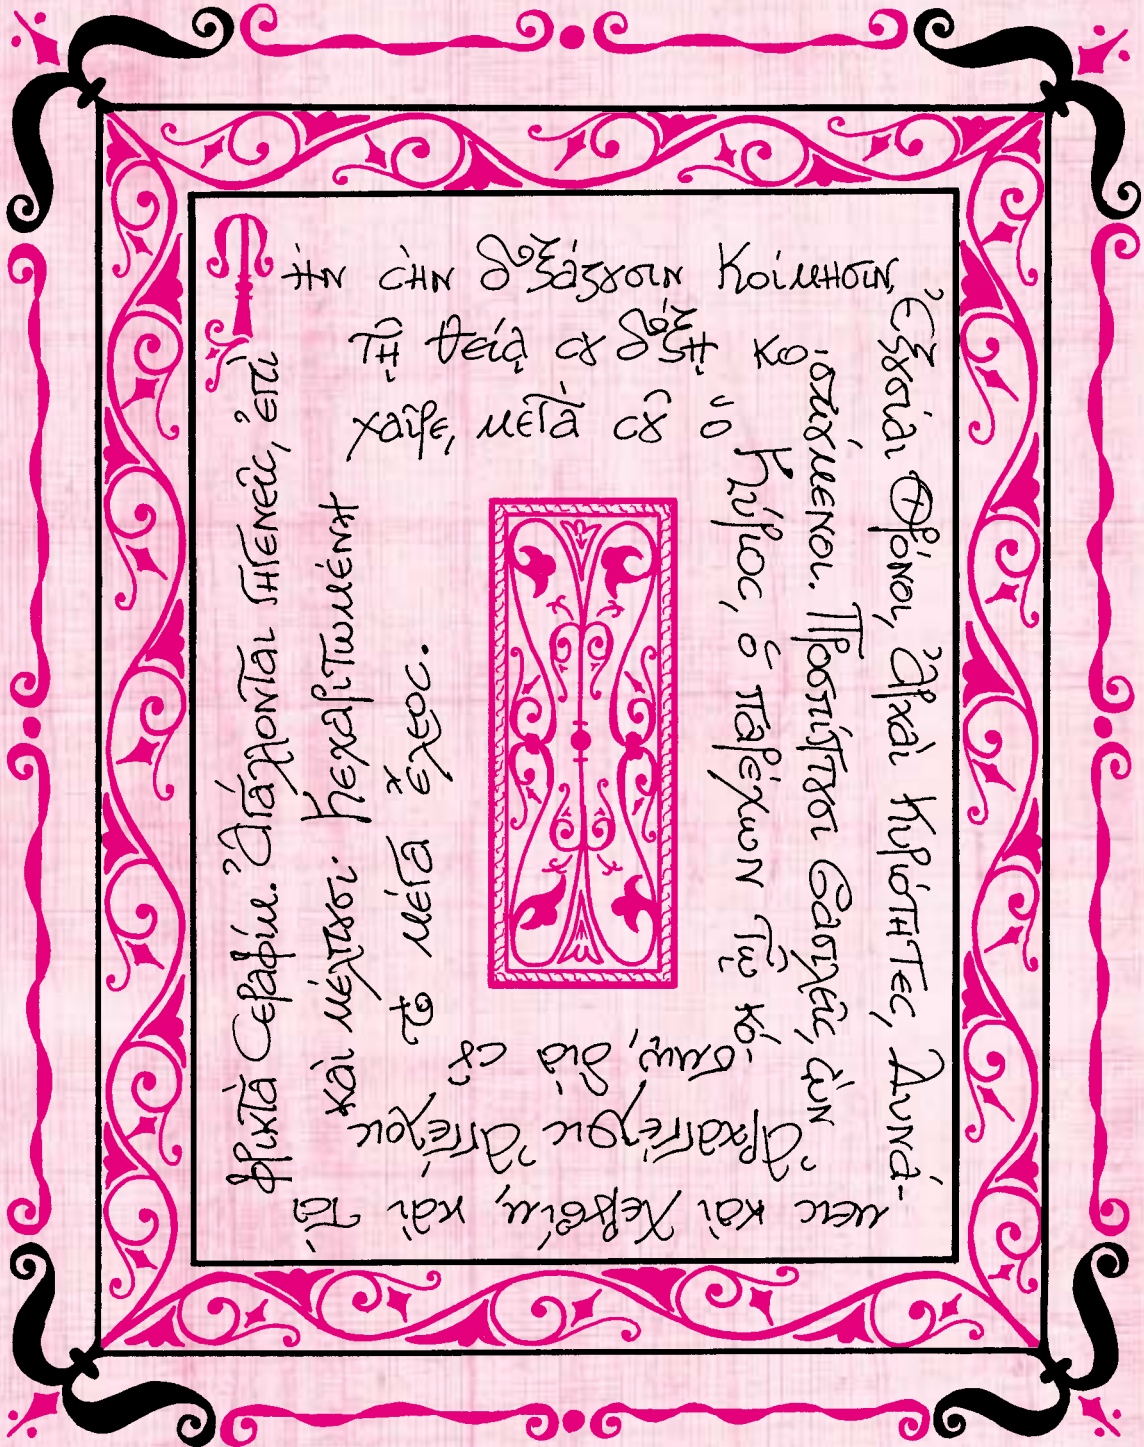 Τὴν σὴν δοξάζουσιν Κοίμησιν,
Ἐξουσίαι Θρόνοι, Ἀρχαὶ Κυριότητες, Δυνά-
μεις καὶ Χερουβίμ, καὶ τὰ
φρικτὰ Σεραφίμ. Ἀγάλλονται γηγενεῖς, ἐπὶ
τῇ θείᾳ σου δόξῃ κο-
σμούμενοι. Προσπίπτουσι βασιλεῖς, σὺν
Ἀρχαγγέλοις Ἀγγέλοις
καὶ μέλπουσι· Κεχαριτωμένη
χαῖρε, μετὰ σοῦ ὁ
Κύριος, ὁ παρέχων τῷ κό-
σμῳ, διὰ σοῦ
τὸ μέγα ἔλεος.